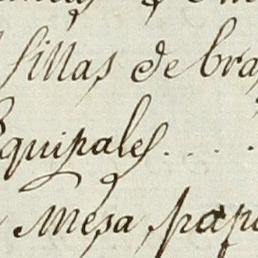 sillas de bra
Equipales....
Mesa pape